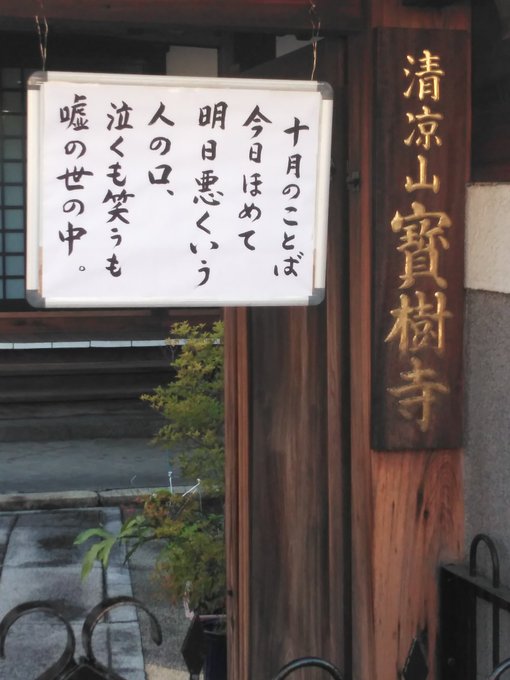 清凉山寶樹寺
十月のことば
今日ほめて
明日悪くいう
人の口、
泣くも笑うも
嘘の世の中。